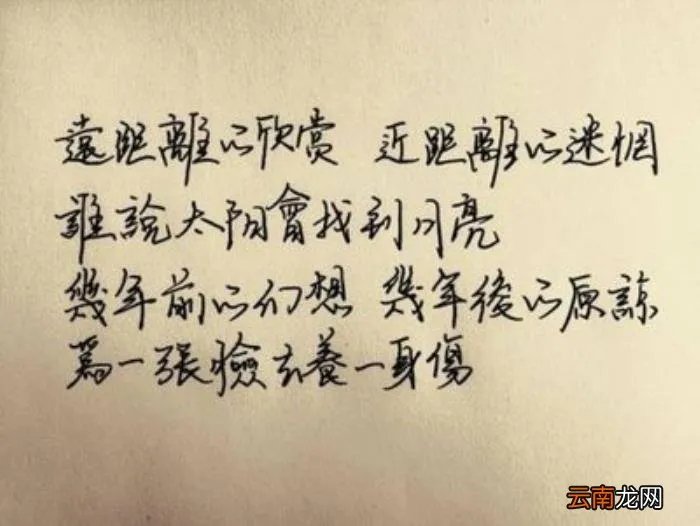 遠距離以欣赏 近距離以迷惘
誰說太阳會找到月亮
幾年前以幻想 幾年後以原諒
為一張臉去養一身傷
云南龙网